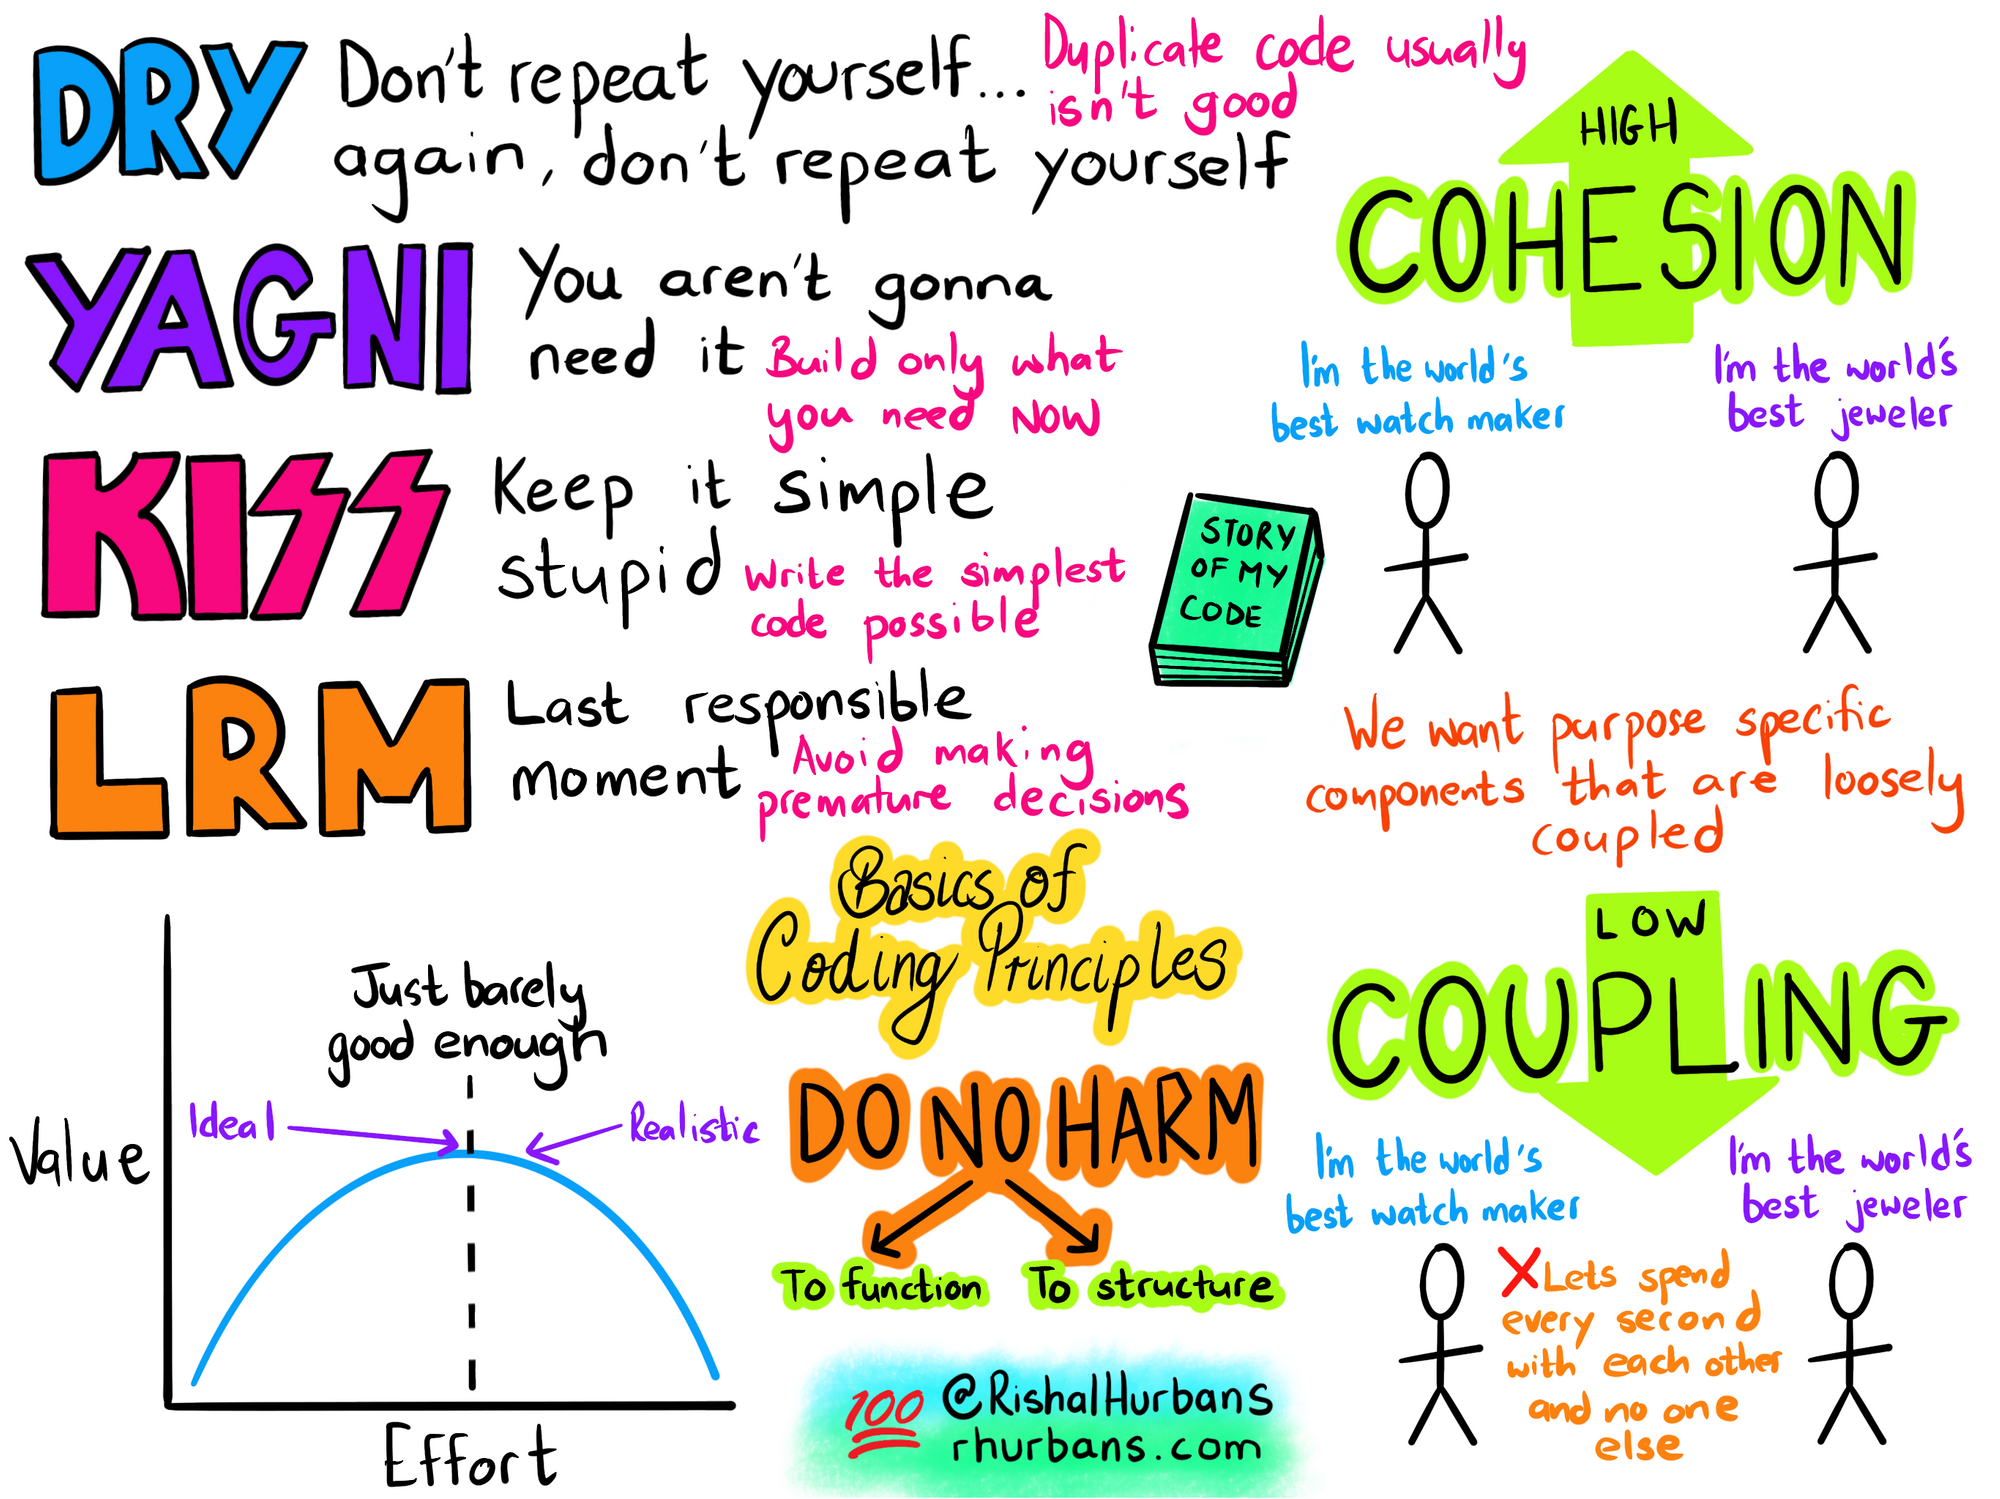 DRY
Don't repeat yourself...
again, don't repeat yourself
Duplicate code usually
isn't good
YAGNI
You aren't gonna
need it
Build only what
you need NOW
KISS
Keep it simple
stupid
Write the simplest
code possible
STORY
OF MY
CODE
LRM
Last responsible
moment
Avoid making
premature decisions
HIGH
COHESION
I'm the world's
best watch maker
I'm the world's
best jeweler
We want purpose specific
components that are loosely
coupled
LOW
COUPLING
I'm the world's
best watch maker
I'm the world's
best jeweler
X Lets spend
every second
with each other
and no one
else
Basics of
Coding Principles
DO NO HARM
To function
To structure
Just barely
good enough
Ideal
Realistic
Value
Effort
100
@RishalHurbans
rhurbans.com